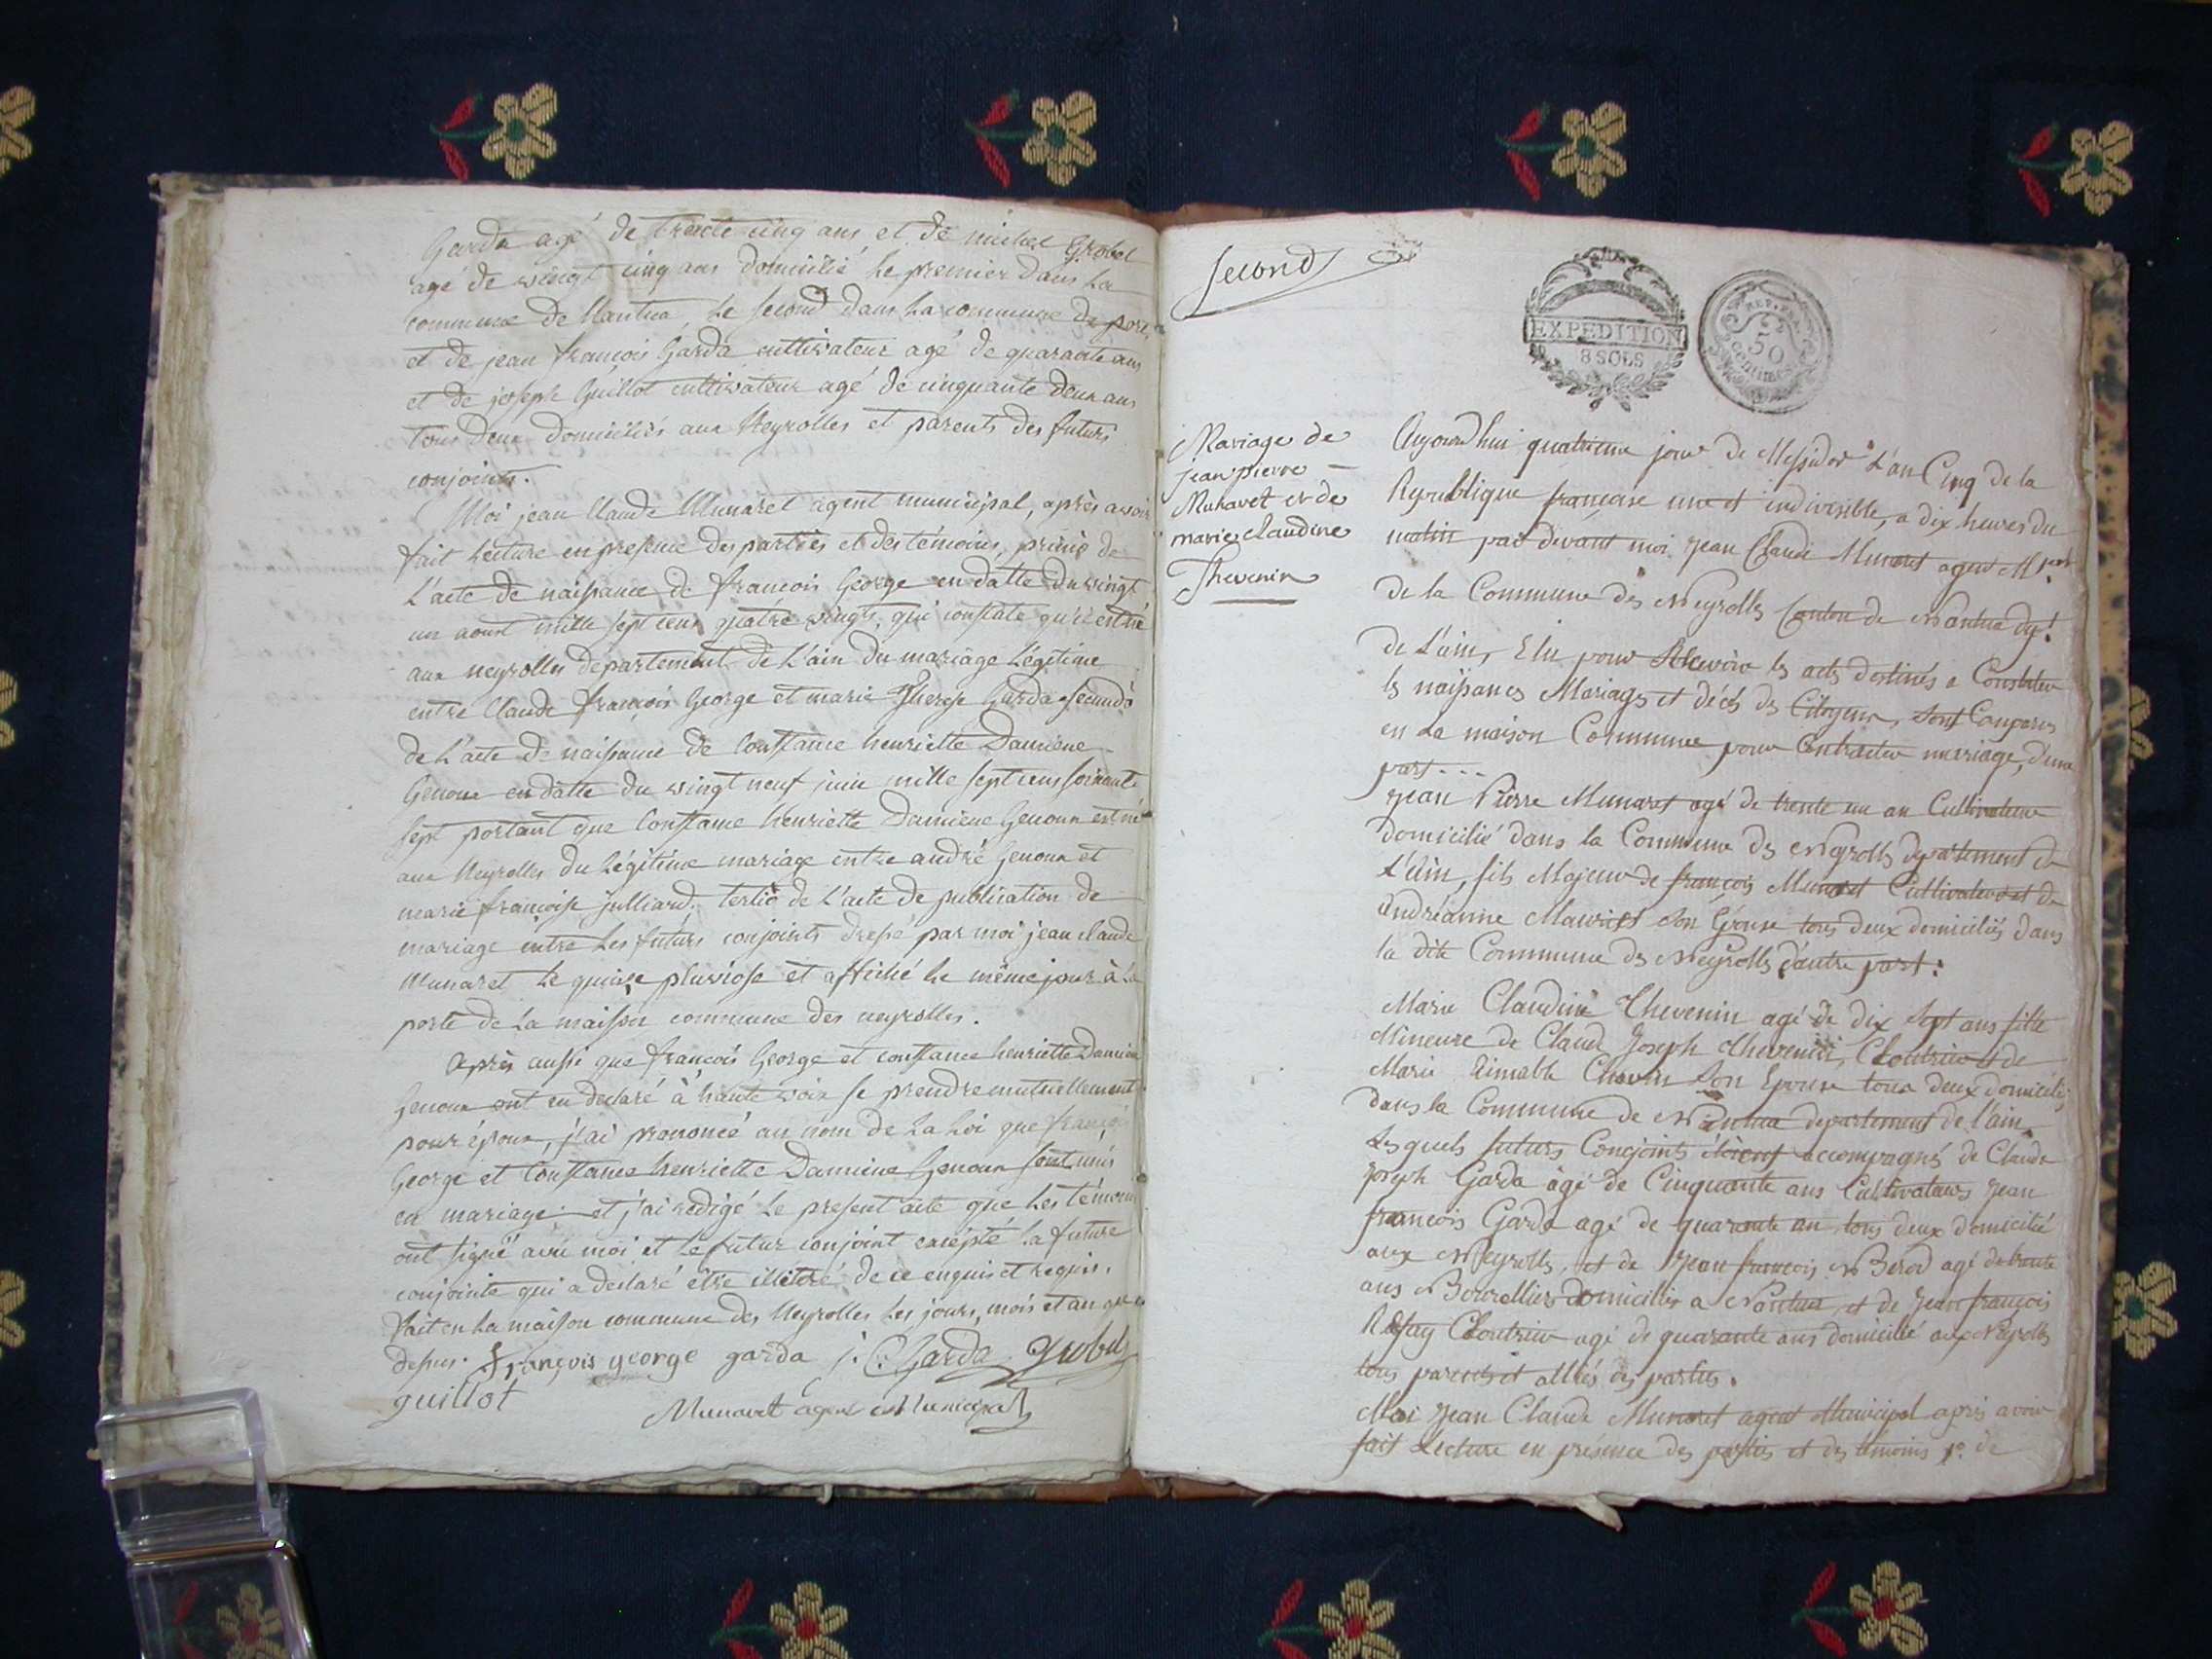 Garda agé de trente cinq ans et de michel Grobel
agé de vingt cinq ans domicilié le premier dans la
commune de Nantua, le second dans la commune de port
et de jean françois Garda cultivateur agé de quarante ans
et de joseph Guillot cultivateur agé de cinquante deux ans
tous deux domiciliés aux Neyrolles et parents des futurs
conjoints.
Moi jean Claude Munaret agent municipal, après avoir
fait lecture en presence des parties et des témoins, primò de
L'acte de naissance de françois George en datte du vingt
un aoust mille sept cens quatre vingts, qui constate qu'il est né
aux neyrolles departement de L'ain du mariage Légitime
entre Claude françois George et marie Therese Garda secundò
de L'acte de naissance de Constance henriette Damiene
Genoux en datte du vingt neuf juin mille sept cens soixante
sept portant que Constance henriette Damiene Genoux est né
aux Neyrolles du Légitime mariage entre andré Genoux et
marie françoise julliard, tertiò de L'acte de publication de
mariage entre les futurs conjoints dressé par moi jean claude
Munaret le quinze pluviose et affiché le même jour à la
porte de la maison commune des neyrolles.
Après aussi que françois George et constance henriette Damiene
Genoux ont eu declaré à haute voix se prendre mutuellement
pour époux, j'ai prononcé au nom de la Loi que françois
George et Constance henriette Damiene Genoux sont unis
en mariage et j'ai redigé le present acte que les témoins
ont signé avec moi et le futur conjoint excepté la future
conjointe qui a declaré être illiteré de ce enquis et requis.
Fait en la maison commune des Neyrolles les jours, mois et an que
dessus. François george garda j. C. Garda Grobel
guillot
Munaret agent Municipal
Second
EXPEDITION
8 SOLS
REP. FRA.
50
centimes
Mariage de
jean pierre
Munaret et de
marie claudine
Thevenin
Aujourdhui quatrieme jour de Messidor L'an Cinq de la
Republique francaise une et indivisible, a dix heures du
matin par devant moi Jean Claude Munaret agent Mpal
de la Commune des Neyrolles Canton de Nantua dept
de L'ain, Elu pour Recevoir les actes destinés a Constater
les naissances Mariages et décès des Citoyens, sont Comparus
en La maison Commune pour Contracter mariage, d'une
part...
Jean Pierre Munaret agé de trente un an Cultivateur
domicilié dans la Commune des Neyrolles departement de
L'ain, fils Majeur de françois Munaret Cultivateur et de
Andréanne Mauriet son Epouse tous deux domiciliés dans
la dite Commune des Neyrolles d'autre part:
Marie Claudine Thevenin agé de dix sept ans fille
Mineure de Claude Joseph Thevenin, Cloutrier et de
Marie Aimable son Epouse tous deux domiciliés
dans la Commune de Nantua departement de l'ain.
Les quels futurs Conjoints étoient accompagnés de Claude
Joseph Garda agé de Cinquante ans Cultivateurs Jean
francois Garda agé de quarante an tous deux domicilié
aux Neyrolles, et de Jean francois Berod agé de trente
ans Bourellier domicilié a Nantua, et de Jean françois
Cloutrier agé de quarante ans domicilié aux Neyrolles
tous parents et alliés des parties.
Moi Jean Claude Munaret agent Municipal après avoir
fait Lecture en présence des parties et des témoins 1o. de